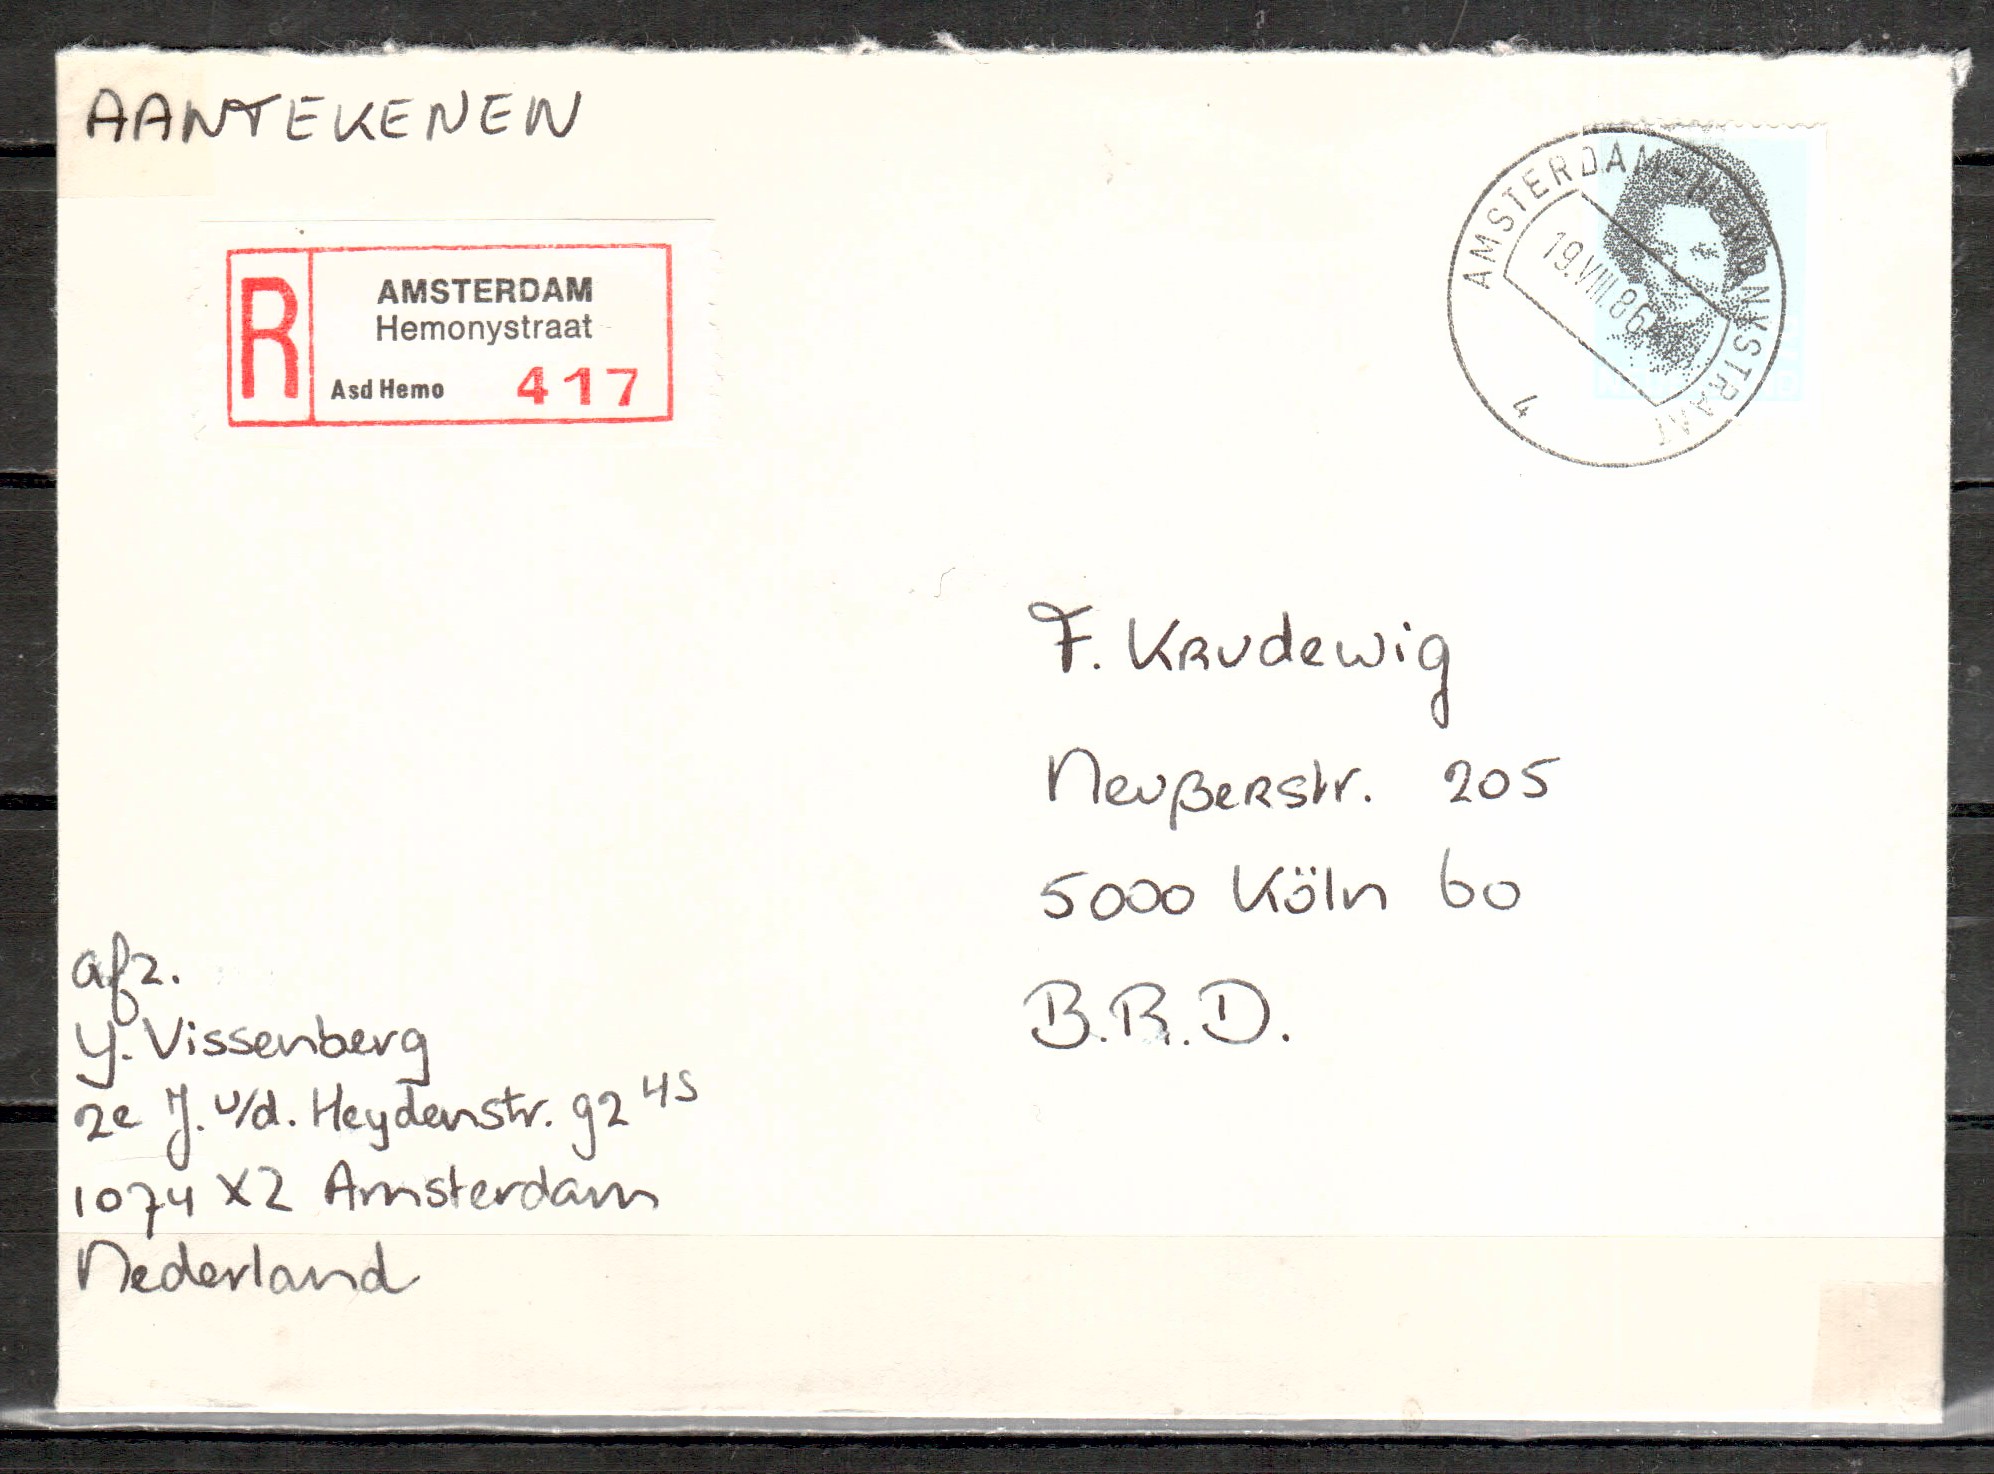 AANTEKENEN
R
AMSTERDAM
Hemonystraat
Asd Hemo 417
AMSTERDAM-HEMONYSTRAAT
19.VIII.86
4
F. Krudewig
Neußerstr. 205
5000 Köln 60
B.R.D.
afz.
Y. Vissenberg
2e J. v/d. Heydenstr. 92 4S
1074 XZ Amsterdam
Nederland